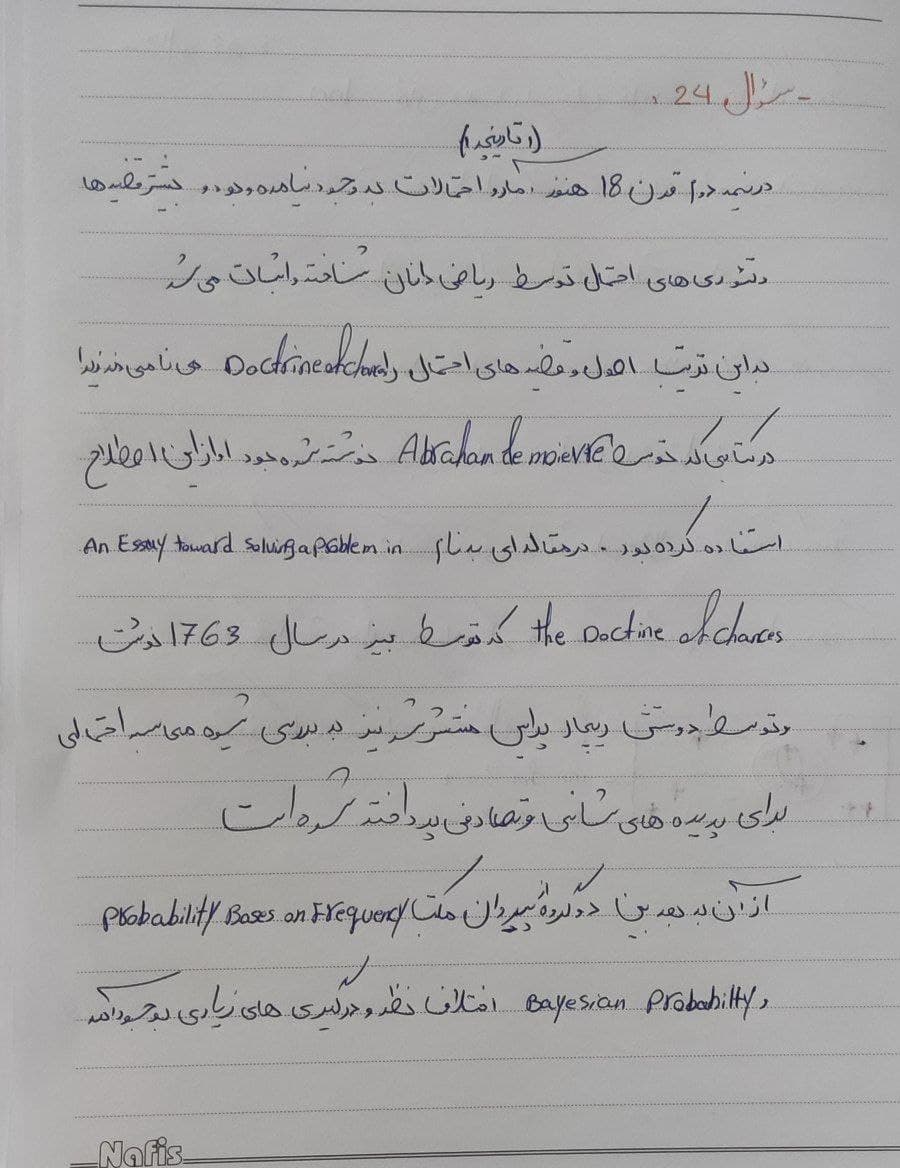 - سؤال 24 :
(تاریخچه)
در نیمه دوم قرن 18 هنوز آمار و احتمالات به وجود نیامده بود و بیشتر قضیه ها
و تئوری های احتمال توسط ریاضی دانان شناخته و اثبات می شد
به این ترتیب اصول و قضیه های احتمال را Doctrine of chances می نامیدند زیرا
در کتابی که توسط Abraham de moievre نوشته شده بود او از این اصطلاح
استفاده کرده بود . در مقاله ای به نام An Essay toward Solving a problem in
the Doctine of chances که توسط بیز در سال 1763 نوشت
و توسط دوستش ریچار پرایس منتشر شد نیز به بررسی شیوه محاسبه احتمالی
برای پدیده های شانسی و تصادفی پرداخته شده است
از آن به بعد بین دو گروه پیروان مکتب Probability Bases on Frequency
و Bayesian Probabilty اختلاف نظر و درگیری های زیادی بوجود آمد
Nafis